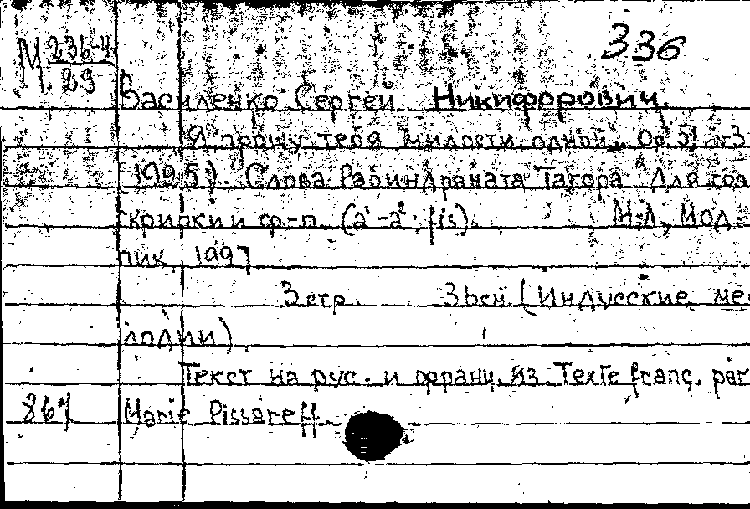 336
М 236-4
1.29
Василенко Сергей Никифорович.
Я прошу тебя милости одной. Ор.
Слова Рабиндраната Тагора. Для
скрипки и ф.-п. (a¹-a²; fis). М.-Л., Мод
пик, 1997
3 стр. (Индусские ме
лодии)
Текст на рус. и франц. яз. Texte franç. par
867 Marie Pissareff.